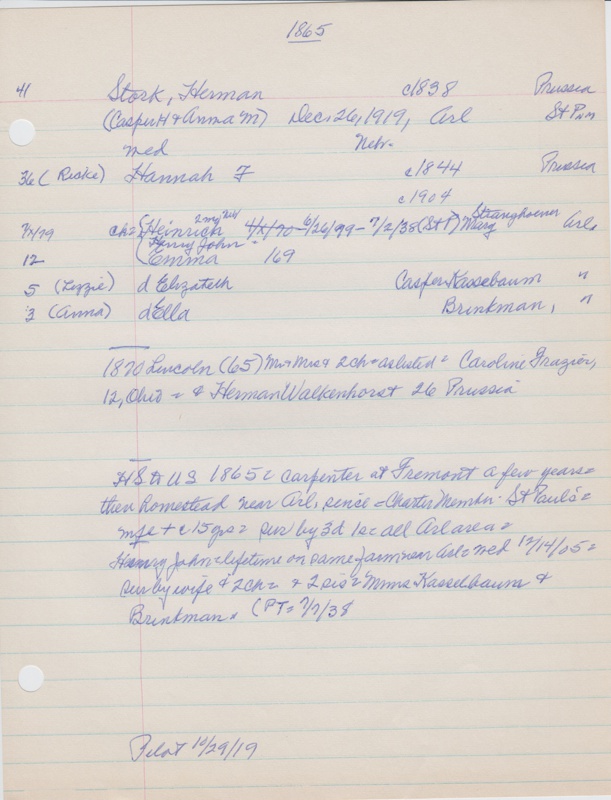 1865
41 Stork, Herman c1838 Prussia
(Casper H & Anna M) Dec. 26, 1919, Arl St P
med Nebr.
36 (Ricke) Hannah F c1844 Prussia
c1904
ch = Heinrich 4/x/70 - 6/26/99 - 7/2/38 (St P) Mary Stranghoener Arl.
Henry John
12 Emma 169
5 (Lizzie) d Elizabeth Casper Kassebaum "
3 (Anna) d Ella Brinkman, "
1870 Lincoln (65) Mr & Mrs & 2 ch = as listed = Caroline Frazier,
12, Ohio = & Herman Walkenhorst 26 Prussia
HS to US 1865 = carpenter at Fremont a few years =
then homestead near Arl. since = Charter Member St Paul's =
c15 yrs = sur by 3d 1s = all Arl area =
Henry John = lifetime on same farm near Arl = med 12/14/05 =
sur by wife & 2 ch = & 2 sis = Mmes Kasselbaum &
Brinkman. (PT = 7/7/38
Pilot 10/29/19